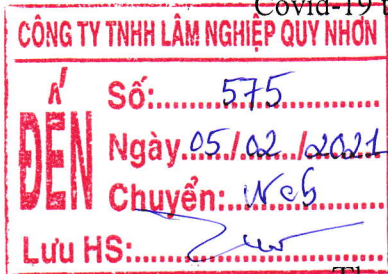 Covid-19
CÔNG TY TNHH LÂM NGHIỆP QUY NHƠN
ĐẾN
Số:.......575.......
Ngày.05./.02../.2021
Chuyển:..Web.......
Lưu HS:.......